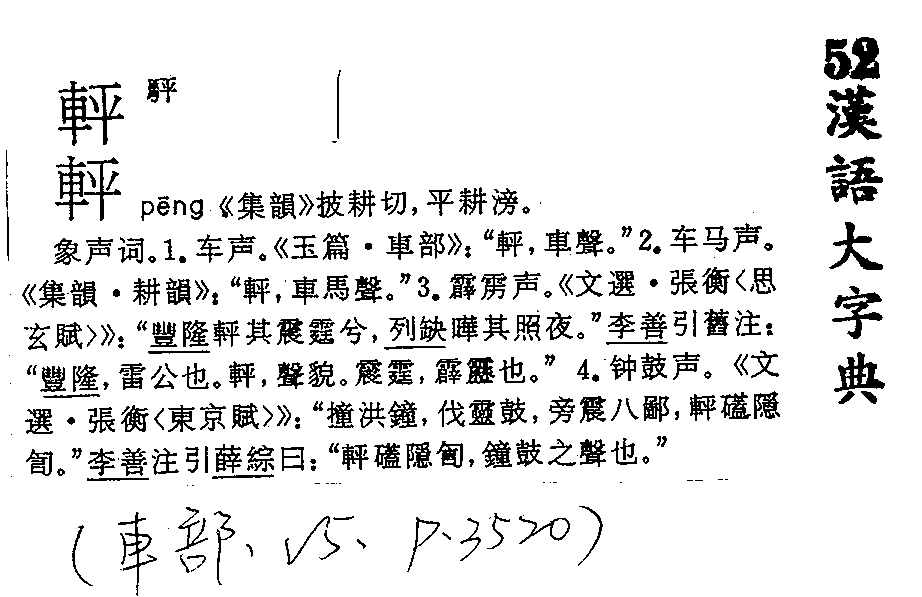 52
漢語大字典
軯 䮒
軯
pēng《集韻》披耕切,平耕滂。
象声词。1.车声。《玉篇·車部》:“軯,車聲。”2.车马声。
《集韻·耕韻》:“軯,車馬聲。”3.霹雳声。《文選·張衡〈思
玄賦〉》:“豐隆軯其震霆兮,列缺曄其照夜。”李善引舊注:
“豐隆,雷公也。軯,聲貌。震霆,霹靂也。” 4.钟鼓声。《文
選·張衡〈東京賦〉》:“撞洪鐘,伐靈鼓,旁震八鄙,軯礚隱
訇。”李善注引薛綜曰:“軯礚隱訇,鐘鼓之聲也。”
(車部、V5、P.3520)